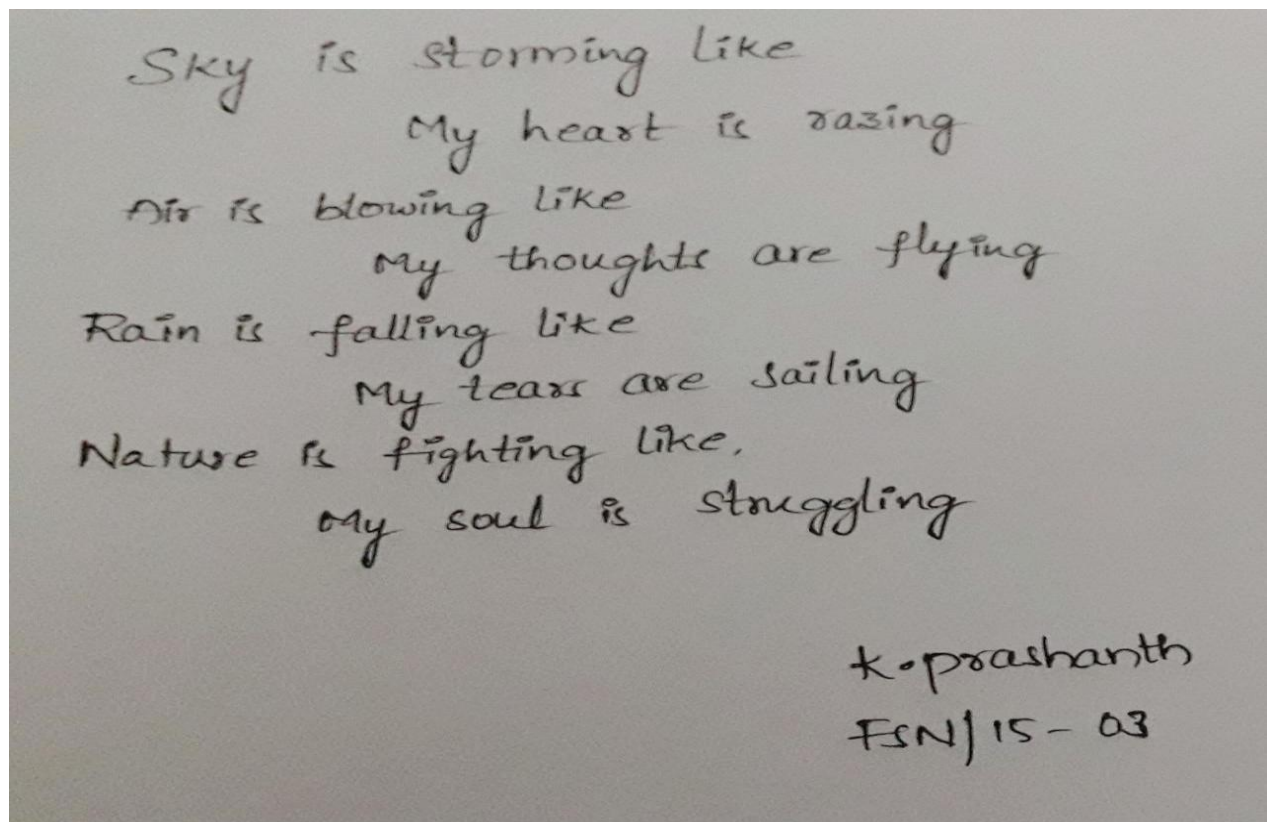 Sky is storming like
My heart is razing
Air is blowing like
My thoughts are flying
Rain is falling like
My tears are sailing
Nature is fighting like,
My soul is struggling
K. prashanth
FSN/15-03